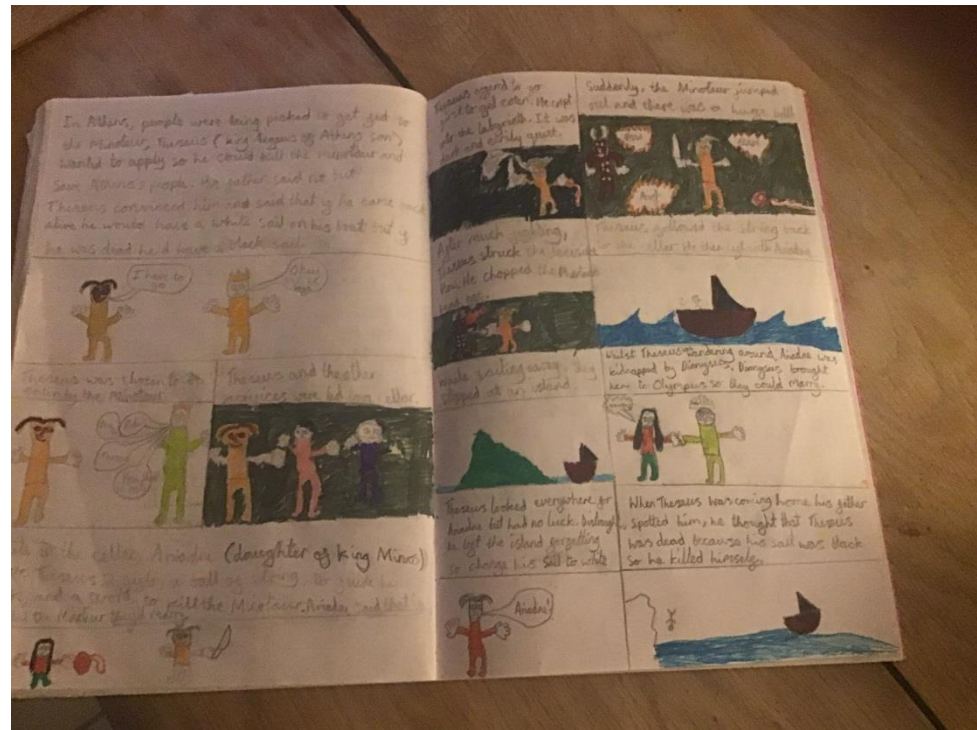 In Athens, people were being picked to get fed to
the Minotaur, Theseus (king Aegeus of Athens son)
wanted to apply so he could kill the minotaur and
save Athens's people. His father said no but
Theseus convinced him and said that if he came
alive he would have a white sail on his boat but if
he was dead he'd have a black sail.
I have to
go
Okay
Theseus was chosen to
the Minotaur.
Theseus and the other
sacrifices were led in a cellar.
the cellar, Ariadne (daughter of king Minos)
Theseus a ball of string, to guide
and a sword, to kill the Minotaur. Ariadne said that
Theseus offered to go
first to get eaten. He crept
in the labyrinth. It was
dark and eerily quiet.
Suddenly, the Minotaur jumped
out and there was a
After much fighting,
Theseus struck the
He chopped the
head off.
Theseus followed the string back
to the cellar. He then left with Ariadne
While sailing away, they
stopped at an island.
Whilst Theseus was wandering around, Ariadne was
kidnapped by Dionysus. Dionysus brought
her to Olympus so they could marry.
Theseus looked everywhere for
Ariadne but had no luck.
he left the island forgetting
to change his sail to white
Ariadne!
When Theseus was coming home his father
spotted him, he thought that Theseus
was dead because his sail was black
so he killed himself.